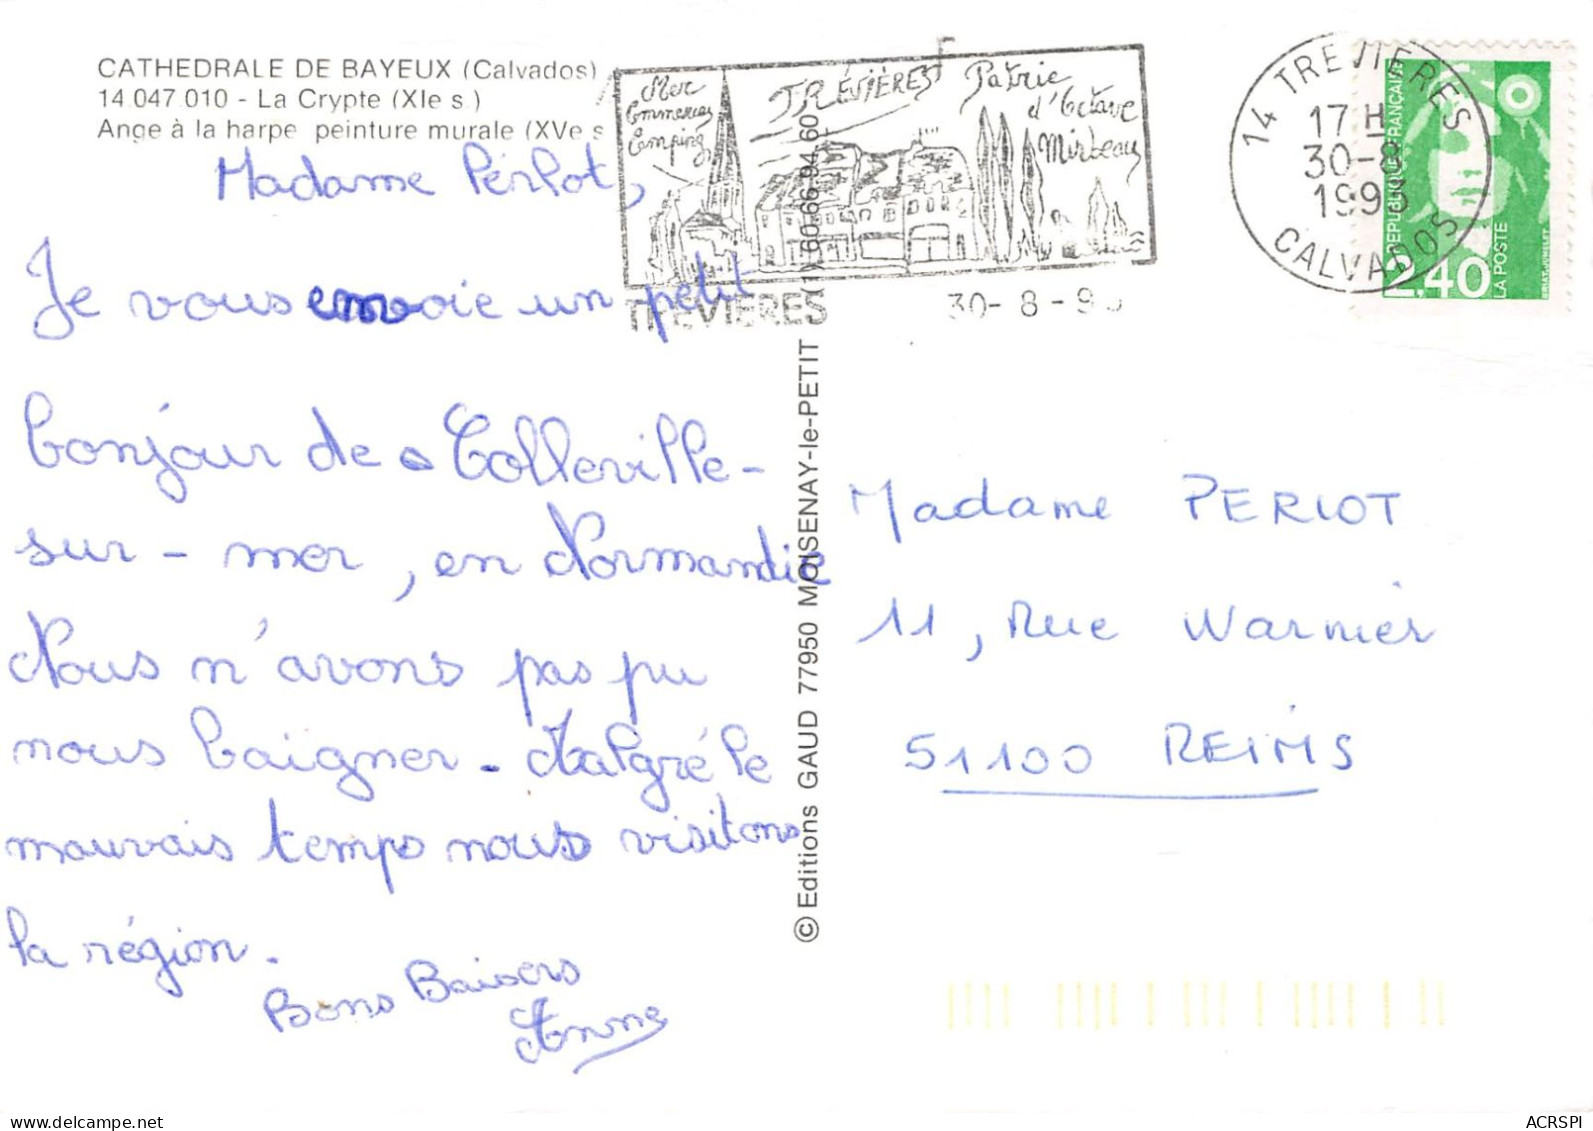 CATHEDRALE DE BAYEUX (Calvados)
14.047.010 - La Crypte (XIe s.)
Ange à la harpe peinture murale (XVe s
Mer
Commerces
Camping
TRÉVIÈRES
Patrie
d'Octave
Mirbeau
TREVIERES
30-8-9
14 TREVIERES
17 H
30-8
1993
CALVADOS
REPUBLIQUE FRANÇAISE
2,40
LA POSTE
Madame Perlot,
Je vous envoie un petit
bonjour de Colleville-
sur-mer, en Normandie
Nous n'avons pas pu
nous baigner. Malgré le
mauvais temps nous visitons
la région.
Bons Baisers
Anne
© Editions GAUD 77950 MOISENAY-le-PETIT (1) 60-66-94-60
Madame PERLOT
11, Rue Warnier
51100 REIMS
www.delcampe.net
ACRSPI